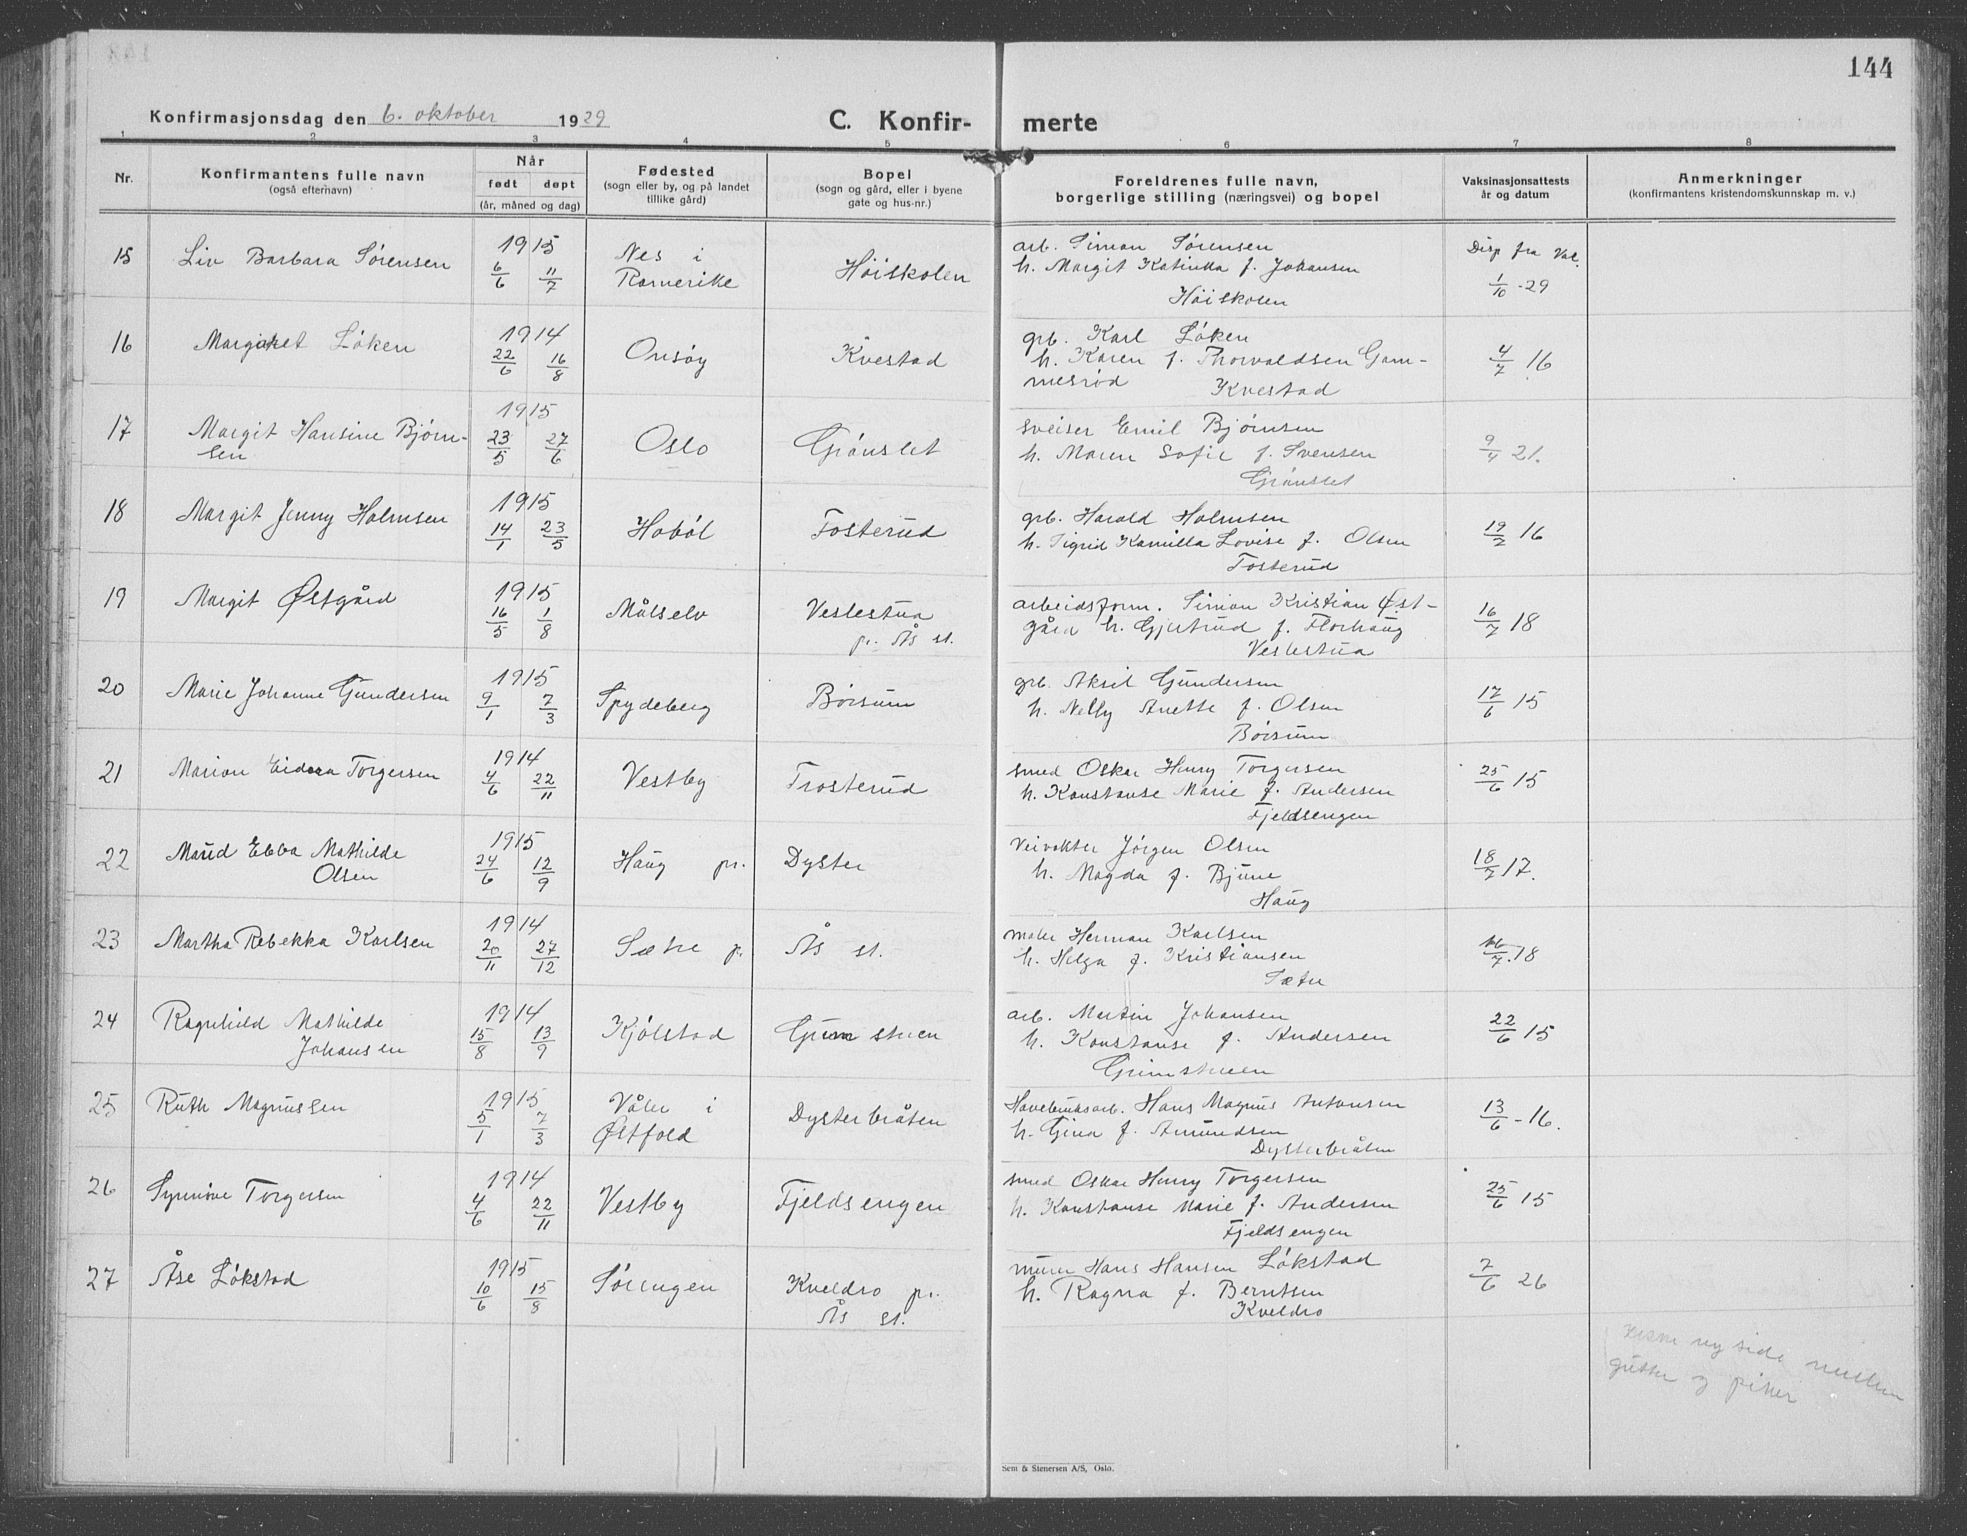 144
Konfirmasjonsdag den 6. oktober 1929
C. Konfir- merte
1 2 3 4 5 6 7 8
Nr.
Konfirmantens fulle navn
(også efternavn)
Når
født døpt
(år, måned og dag)
Fødested
(sogn eller by, og på landet
tillike gård)
Bopel
(sogn og gård, eller i byene
gate og hus-nr.)
Foreldrenes fulle navn,
borgerlige stilling (næringsvei) og bopel
Vaksinasjonsattests
år og datum
Anmerkninger
(konfirmantens kristendomskunnskap m. v.)
15 Liv Barbara Sørensen 1915 6/6 11/7 Nes i Høiskolen arb. Simon Sørensen Disp fra Vak.
h. Margit Katinka f. Johansen 1/10 -29
Høiskolen
16 Margaret Løken 1914 22/6 16/8 Onsøy Kvestad grb. Karl Løken 4/7 16
h. Karen f. Thorvaldsen Gam-
mesrød Kvestad
17 Margit Hansine Bjørn- 1915 23/5 27/6 Oslo Grønslet sveiser Emil Bjørnsen 9/4 21.
sen h. Maren Sofie f. Svensen
Grønslet
18 Margit Jenny Holmsen 1915 14/1 23/5 Hobøl Fosterud grb. Harald Holmsen 19/2 16
h. Sigrid Kamilla Lovise f. Olsen
Fosterud
19 Margit Østgård 1915 16/5 1/8 Målselv Veslestua arbeidsform. Simon Kristian Øst- 16/7 18
pr. Ås st. gård h. Gjertrud f. Florhaug
Veslestua
20 Marie Johanne Gundersen 1915 9/1 7/3 Spydeberg Børsum grb. Aksel Gundersen 17/6 15
h. Nelly Anette f. Olsen
Børsum
21 Marion Torgersen 1914 4/6 22/11 Vestby Trosterud smed Oskar Henry Torgersen 25/6 15
h. Konstanse Marie f. Andersen
Fjeldsengen
22 Maud Ebba Mathilde 1915 24/6 12/9 Haug pr. Dyster Veivokter Jørgen Olsen 18/7 17.
Olsen h. Magda f. Bjune
Haug
23 Martha Rebekka Karlsen 1914 20/11 27/12 Sætre p. Ås st. maler Herman Karlsen 16/7. 18
h. Helga f. Kristiansen
Sætre
24 Ragnhild Mathilde 1914 15/8 13/9 Kjølstad Grimstuen arb. Martin Johansen 22/6 15
Johansen h. Konstanse f. Andersen
Grimstueen
25 Ruth Magnussen 1915 5/1 7/3 Våler i Dysterbråten Havebruksarb. Hans Magnus Antonsen 13/6 - 16.
Østfold h. Gina f. Amundsen
Dysterbråten
26 Synnøve Torgersen 1914 4/6 22/11 Vestby Fjeldsengen smed Oskar Henry Torgersen 25/6 15
h. Konstanse Marie f. Andersen
Fjeldsengen
27 Åse Løkstad 1915 10/6 15/8 Sørengen Kveldro pr. murer Hans Hansen Løkstad 7/6 26
Ås st. h. Ragna f. Berntsen
Kveldro
ny side mellem
gutter og piker
Sem & Stenersen A/S, Oslo.